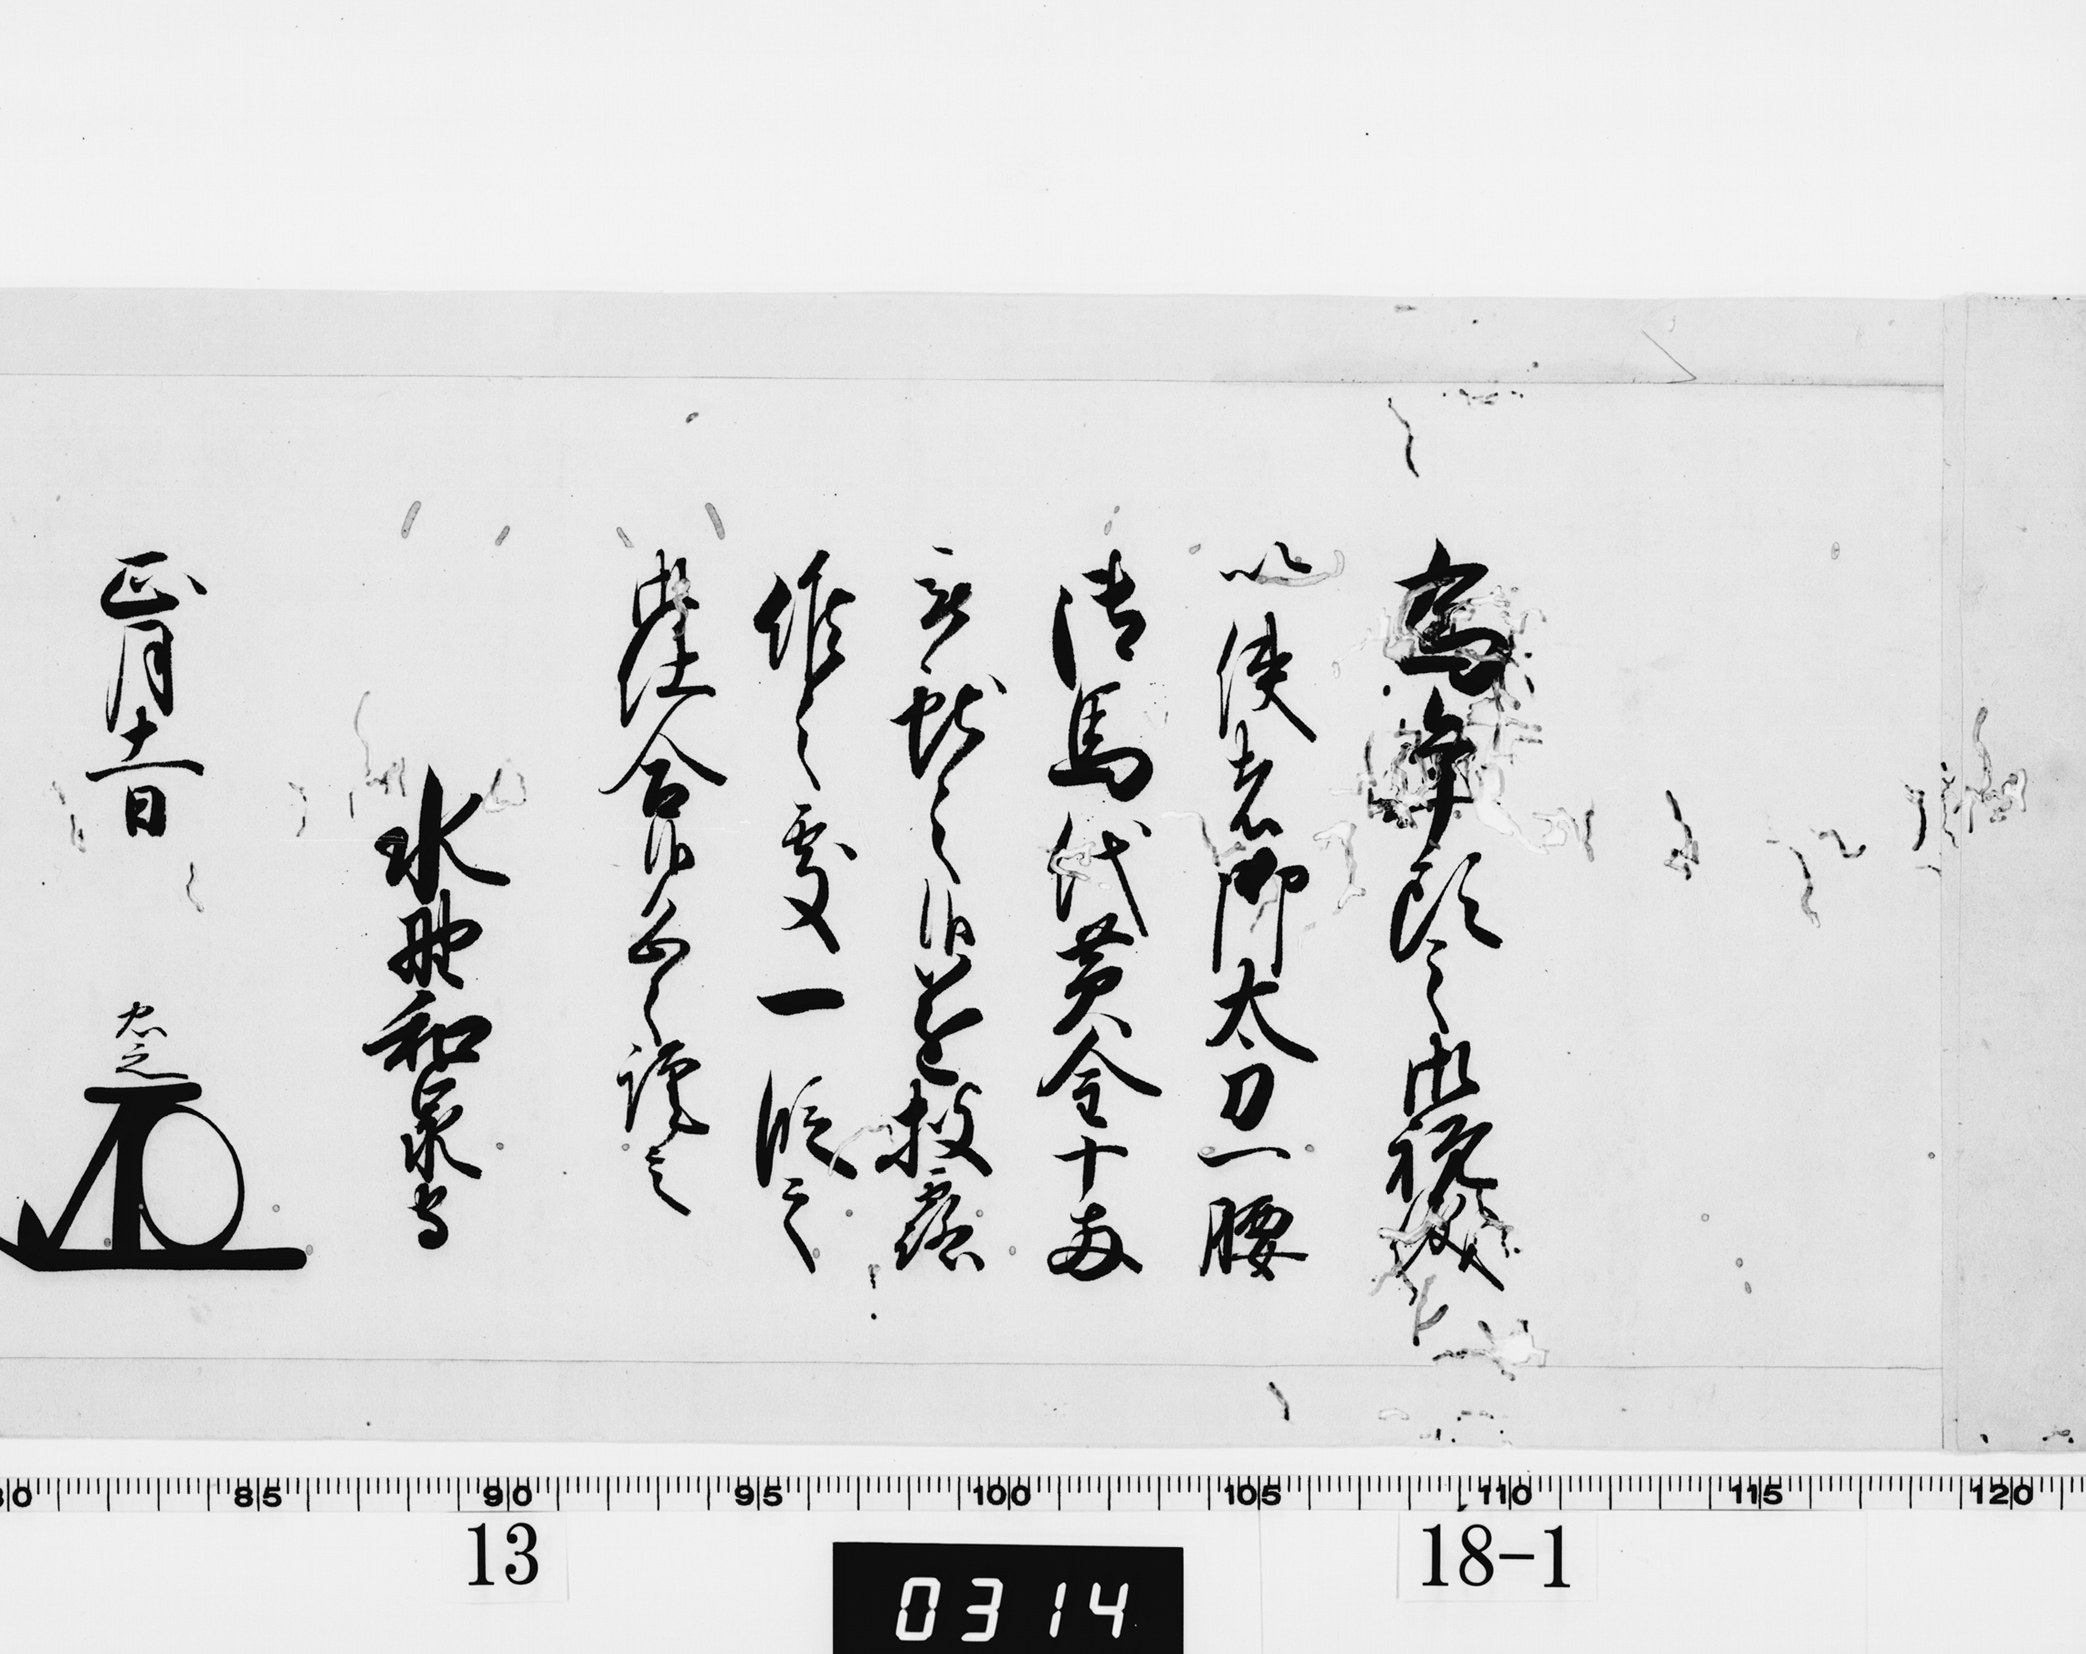 為年頭之御祝儀
以使者御太刀一腰
御馬代黄金十両
被献之候遂披露
候之処一段之
御仕合候恐々謹言
水野和泉守
正月十一日 忠之
80 85 90 95 100 105 110 115 120
13 18-1
0314